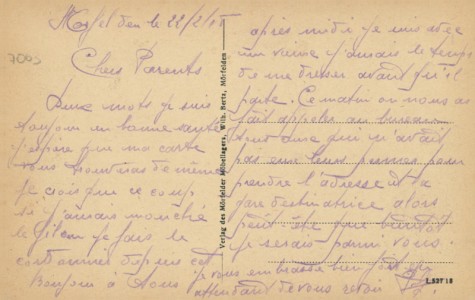 Morfelden le 22/2/
7003
Chers Parents
Deux mots je suis
toujours en bonne santé
j'espère que ma carte
vous trouvera de même
je crois que ce coup
si j'aurais
le je fais le
depuis cet
Bonjour à tous
après midi je suis avec
un j'aurais le temps
de me avant qu'il
parte. Ce matin on nous a
fait appeler au bureau
tout ceux qui n'avait
pas eu leurs pour
prendre l'adresse et la
gare destinatrice alors
peut être que bientôt
je serais parmi vous.
je vous embrasse bien fort en
attendant de vous revoir
Verlag des Mörfelder Möbellagers, Wilh. Bertz, Mörfelden
L 537 18